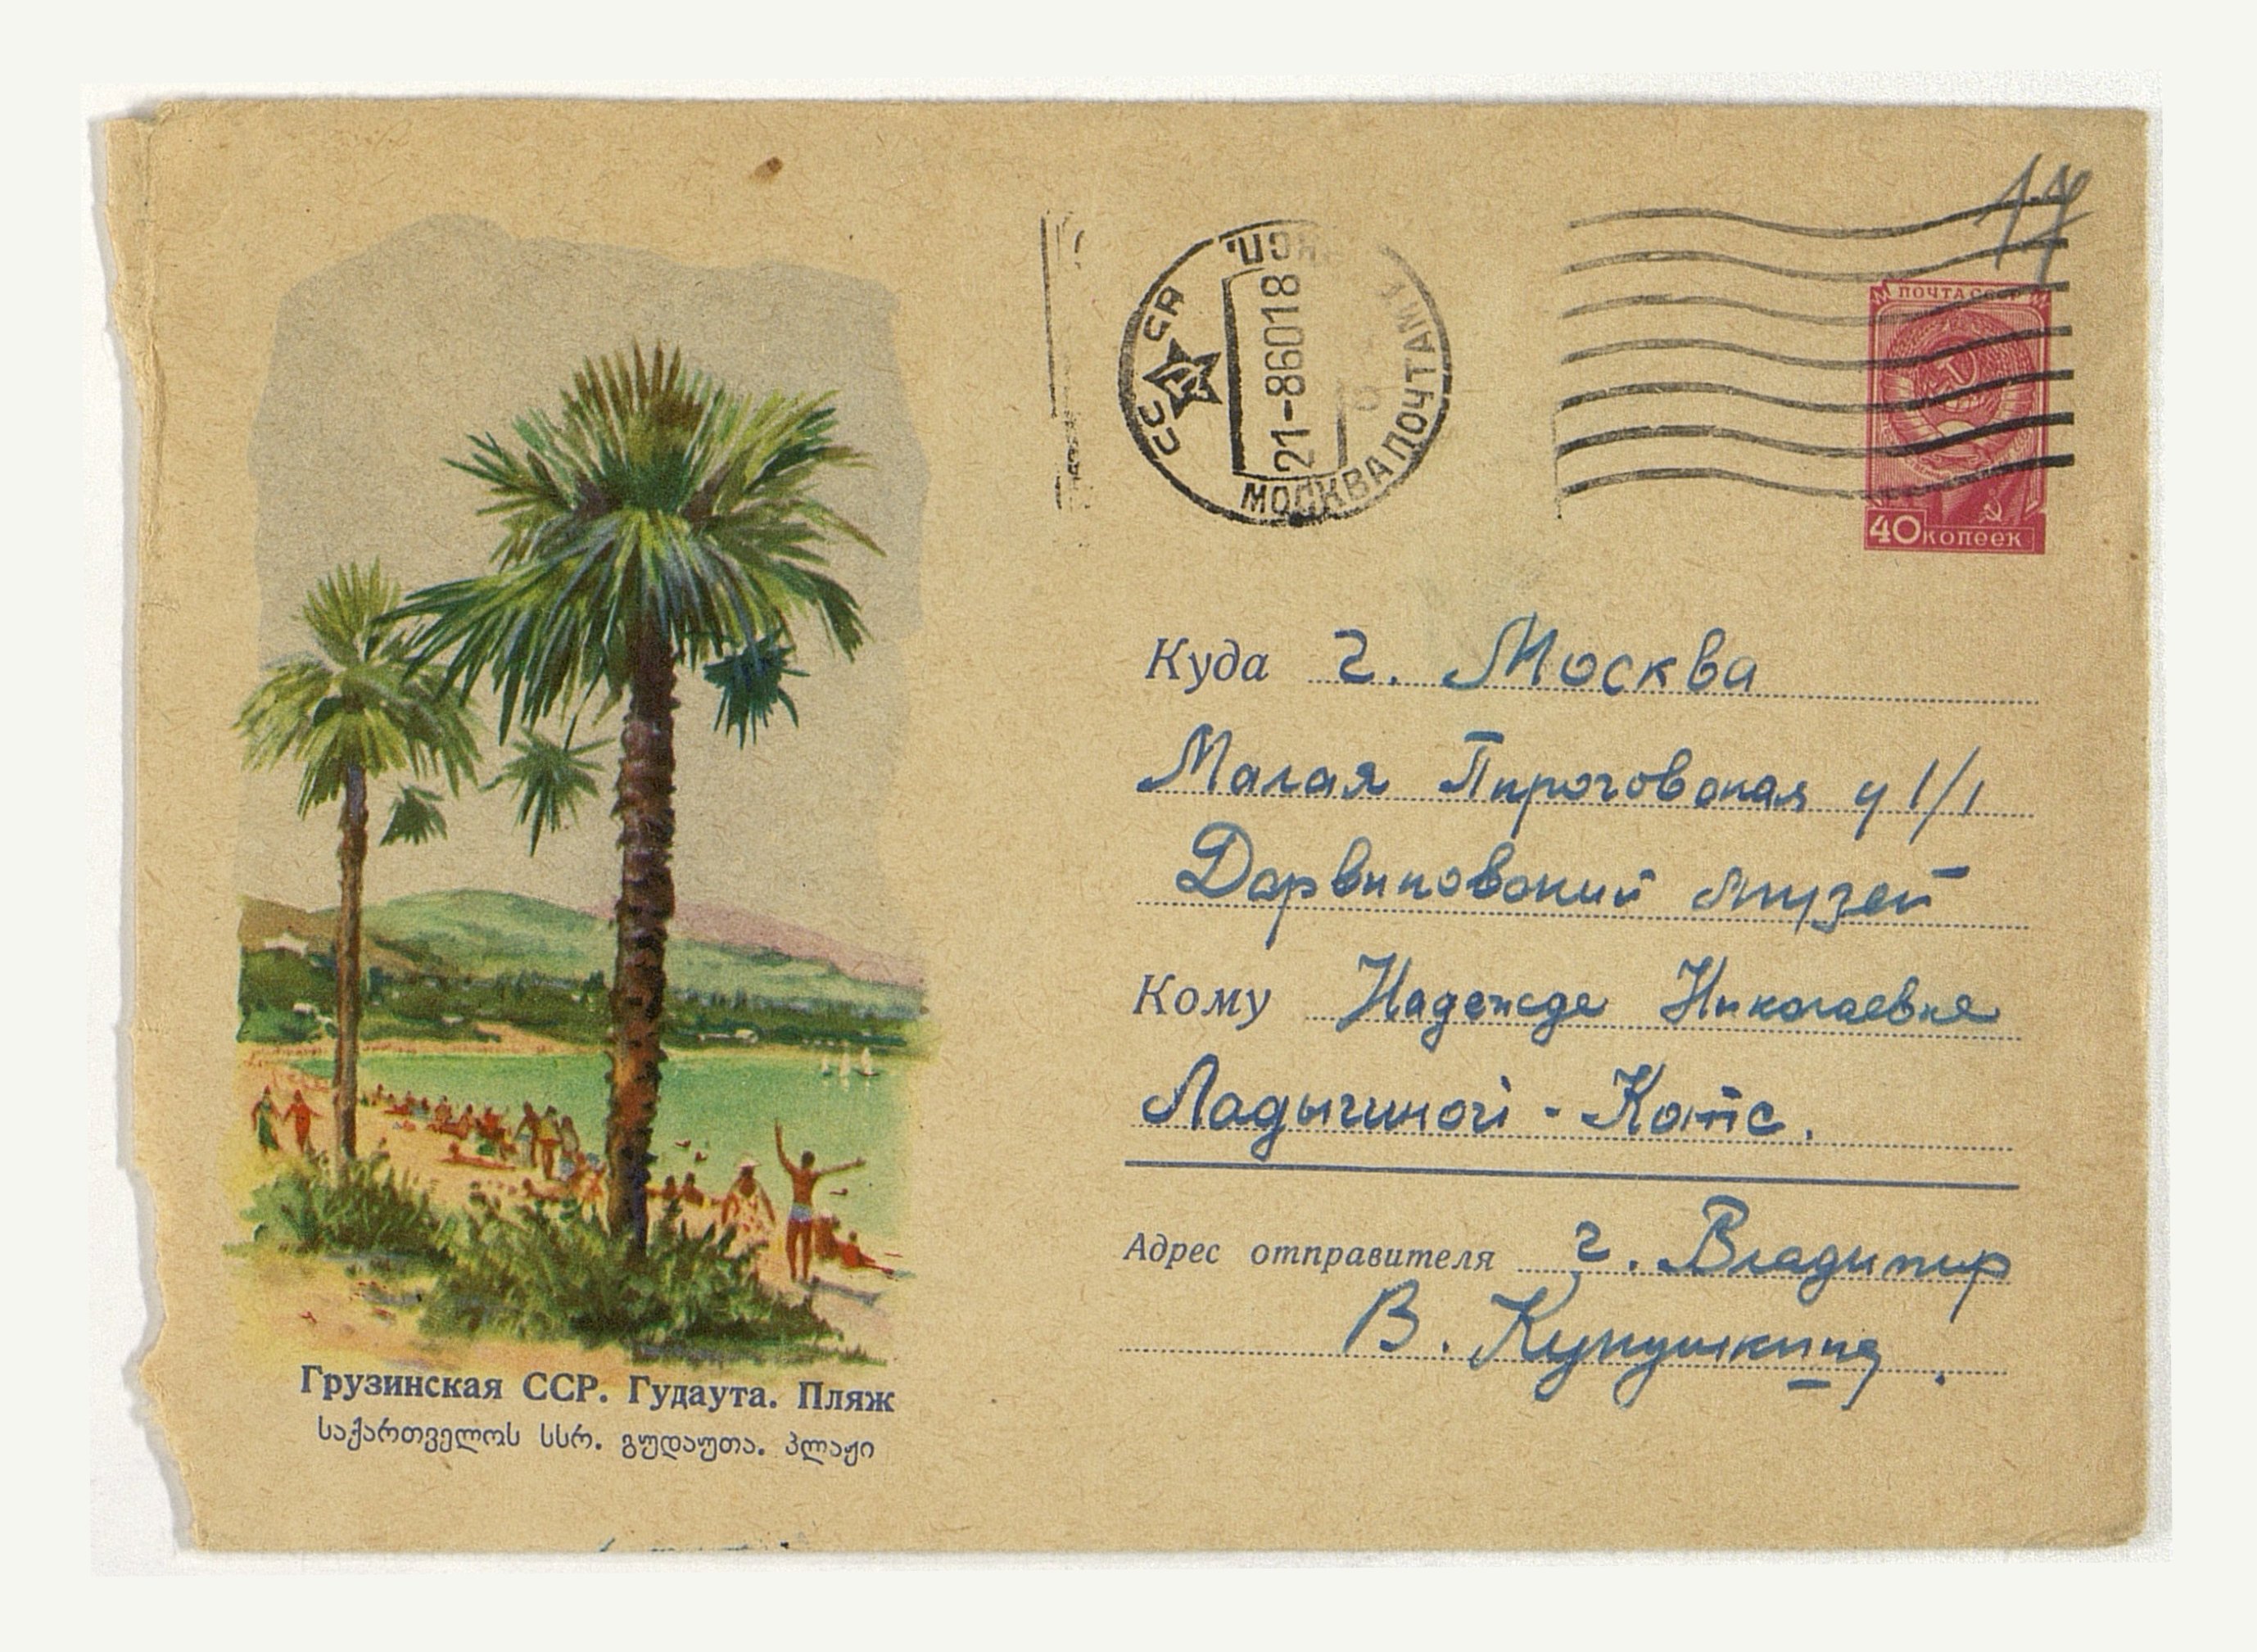 17
ПОЧТА СССР
40 копеек
СССР
21-86018
МОСКВА ПОЧТАМТ
Куда г. Москва
Малая Пироговская у 1/1
Дарвиновский музей
Кому Надежде Николаевне
Ладыгиной - Котс.
Адрес отправителя г. Владимир
В. Кукушкина.
Грузинская ССР. Гудаута. Пляж
საქართველოს სსრ. გუდაუთა. პლაჟი